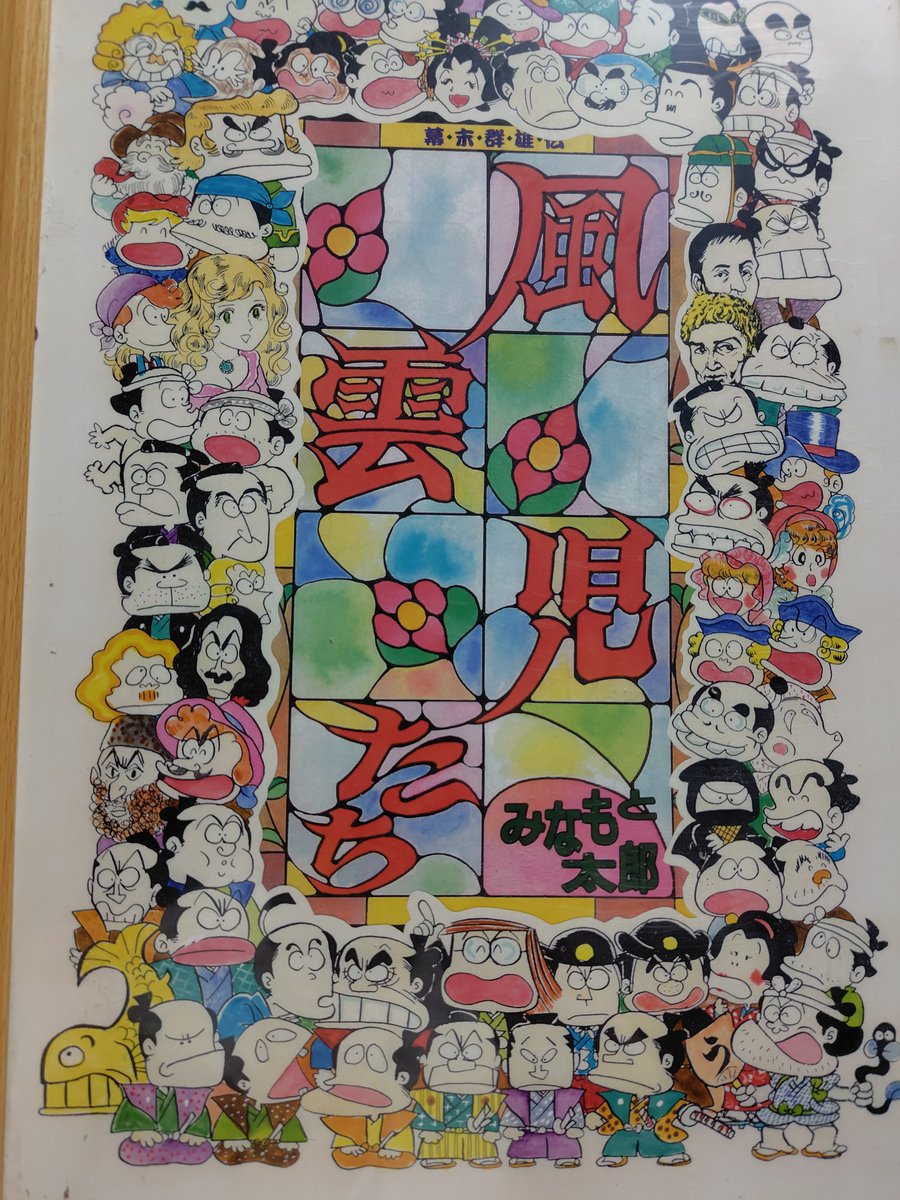 幕・末・群・雄・伝
風
雲
児
たち
みなもと
太郎
う